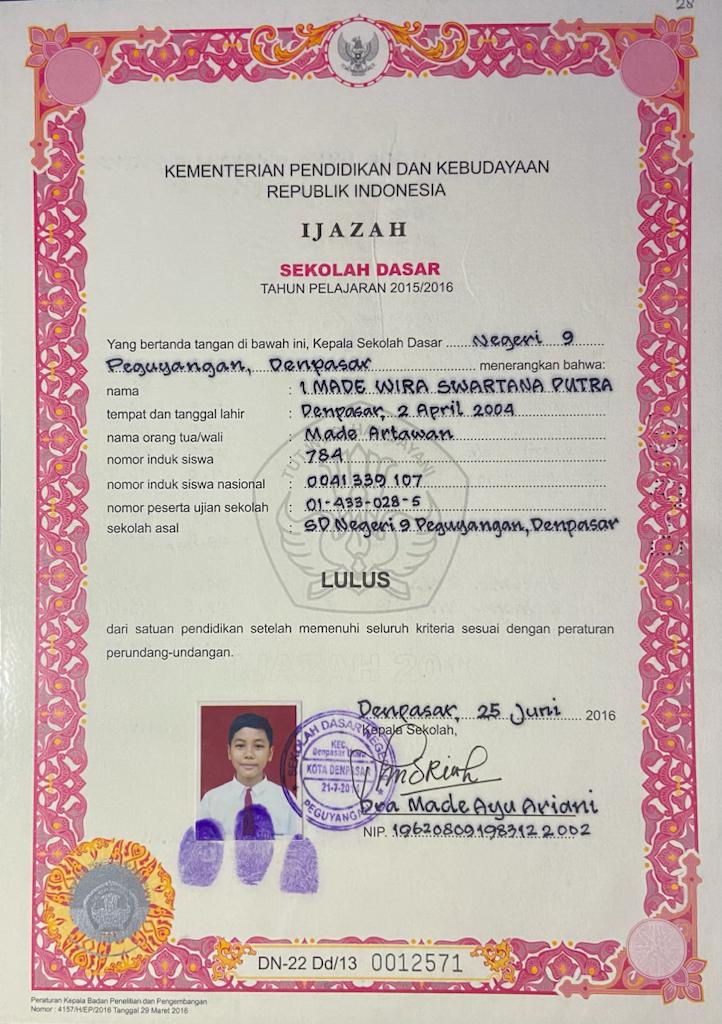 28
KEMENTERIAN PENDIDIKAN DAN KEBUDAYAAN
REPUBLIK INDONESIA
IJAZAH
SEKOLAH DASAR
TAHUN PELAJARAN 2015/2016
Yang bertanda tangan di bawah ini, Kepala Sekolah Dasar Negeri 9
Peguyangan, Denpasar menerangkan bahwa:
nama : I MADE WIRA SWARTANA PUTRA
tempat dan tanggal lahir : Denpasar, 2 April 2004
nama orang tua/wali : Made Artawan
nomor induk siswa : 784
nomor induk siswa nasional : 0041339107
nomor peserta ujian sekolah : 01-433-028-5
sekolah asal : SD Negeri 9 Peguyangan, Denpasar
TUT WURI HANDAYANI
LULUS
dari satuan pendidikan setelah memenuhi seluruh kriteria sesuai dengan peraturan
perundang-undangan.
Denpasar, 25 Juni 2016
Kepala Sekolah,
SEKOLAH DASAR NEGERI
KEC.
Denpasar
KOTA DENPASAR
PEGUYANGAN
Dra Made Ayu Ariani
NIP. 196208091983122002
DN-22 Dd/13 0012571
Peraturan Kepala Badan Penelitian dan Pengembangan
Nomor : 4157/H/EP/2016 Tanggal 29 Maret 2016